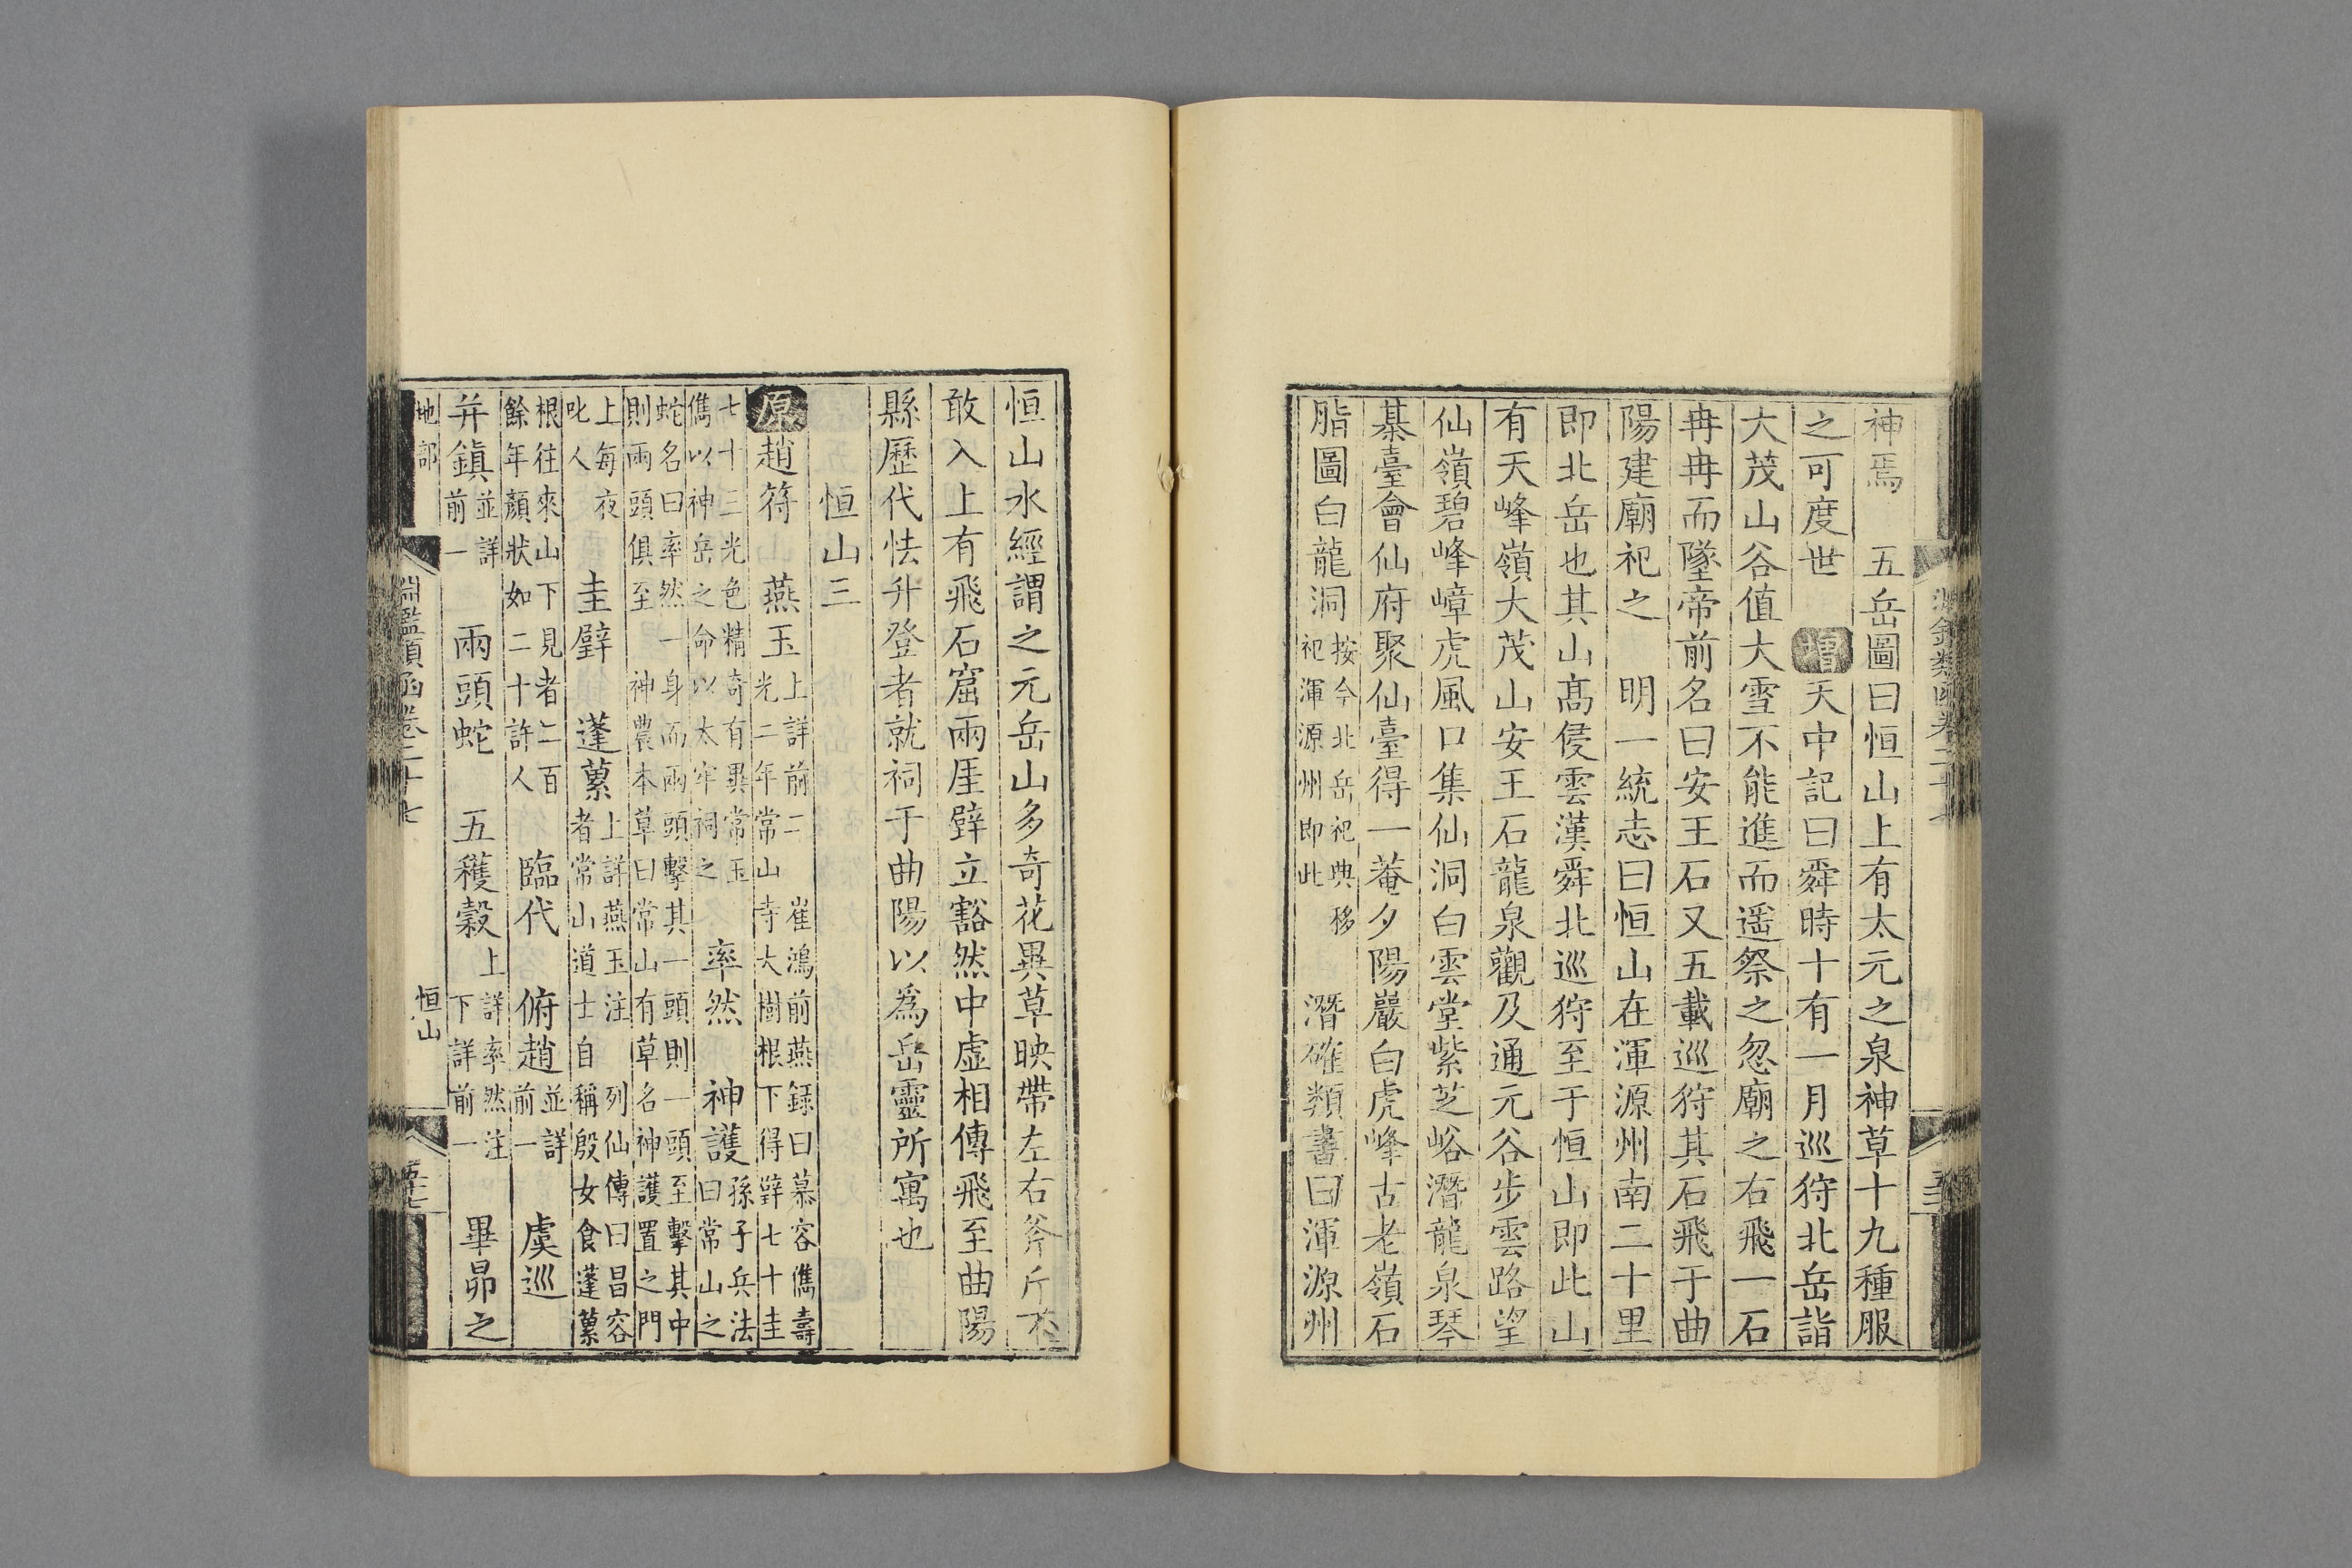 神焉　五岳圖曰恒山上有太元之泉神草十九種服
之可度世　增天中記曰舜時十有一月巡狩北岳詣
大茂山谷值大雪不能進而遥祭之忽廟之右飛一石
冉冉而墜帝前名曰安王石又五載巡狩其石飛于曲
陽建廟祀之　明一統志曰恒山在渾源州南二十里
即北岳也其山髙侵雲漢舜北巡狩至于恒山即此山
有天峰嶺大茂山安王石龍泉觀及通元谷步雲路望
仙嶺碧峰嶂虎風口集仙洞白雲堂紫芝峪潛龍泉琴
棊臺會仙府聚仙臺得一菴夕陽巖白虎峰古老嶺石
脂圖白龍洞
按今北岳祀典移
祀渾源州即此
潛確類書曰渾源州
恒山水經謂之元岳山多奇花異草映帶左右斧斤不
敢入上有飛石窟兩厓壁立豁然中虛相傳飛至曲陽
縣歷代怯升登者就祠于曲陽以爲岳靈所寓也
恒山三
原趙符　燕玉
上詳前二　崔鴻前燕録曰慕容儁壽
光二年常山寺大樹根下得璧七十圭
七十三光色精奇有異常玉
儁以神岳之命以太牢祠之
率然　神護
孫子兵法
曰常山之
蛇名曰率然一身而兩頭擊其一頭則一頭至擊其中
則兩頭俱至　神農本草曰常山有草名神護置之門
上每夜
叱人
圭璧　蓬蔂
上詳燕玉注　列仙傳曰昌容
者常山道士自稱殷女食蓬蔂
根往來山下見者二百
餘年顔狀如二十許人
臨代　俯趙
並詳
前一
虞巡
并鎮
並詳
前一
兩頭蛇　五穫穀
上詳率然注
下詳前一
畢昴之
地部
淵鑑類函卷二十七
恒山